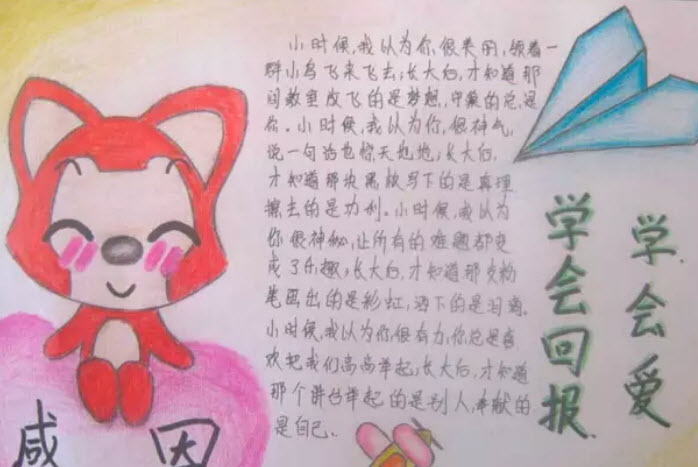 小时候,我认为你很美丽,领着一
群小鸟飞来飞去;长大后,才知道那
间教室放飞的是梦想,守巢的总是
你。小时候,我认为你,很神气,
说一句话也惊天地;长大后,
才知道那块黑板写下的是真理
擦去的是功利。小时候,我认为
你很神秘,让所有的难题都变
成了乐趣;长大后,才知道那支粉
笔画出的是彩虹,洒下的是泪滴。
小时候,我认为你很有力,你总是喜
欢把我们高高举起;长大后,才知道
那个讲台举起的是别人,奉献的
是自己。
学会爱
学会回报
感